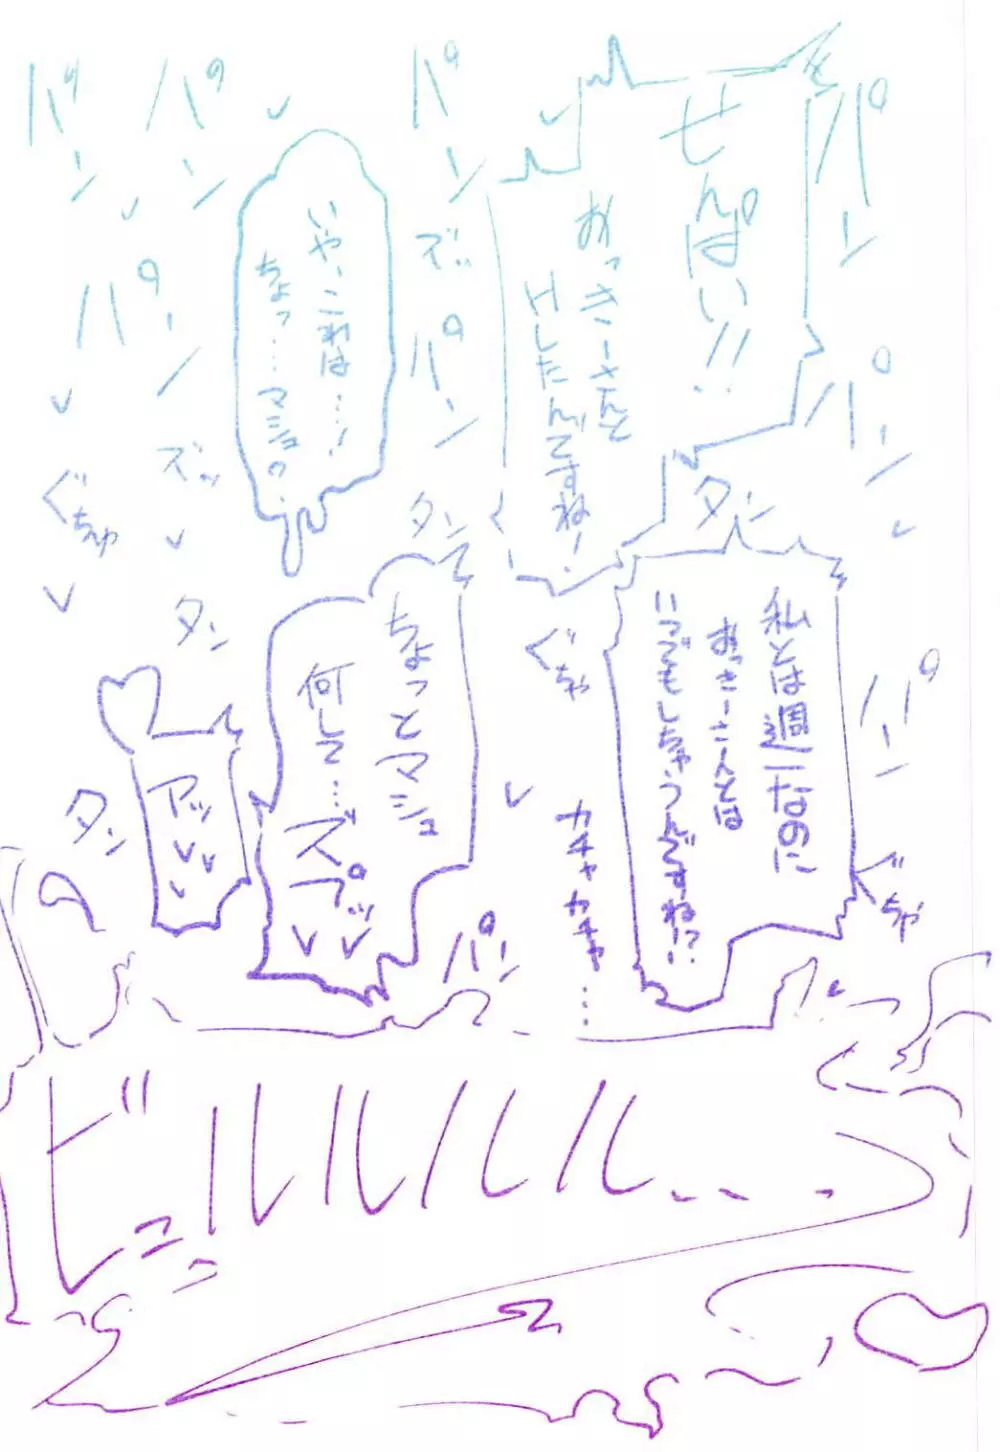 パン
せんぱい!!
おっきーさんと
Hしたんですね!
パン
パン
ズッ
パン
タン
タン
いや、これは…!
ちょっ…マシュ?
パン
パン
パン
ズッ
ぐちゅ
タン
パン
ぐちゅ
私とは週一なのに
おっきーさんとは
いつでもしちゃうんですね!?
ぐちゅ
カチャカチャ…
ちょっとマシュ
何して…
ズプッ
パン
アッ
タン
ビュルルルル…